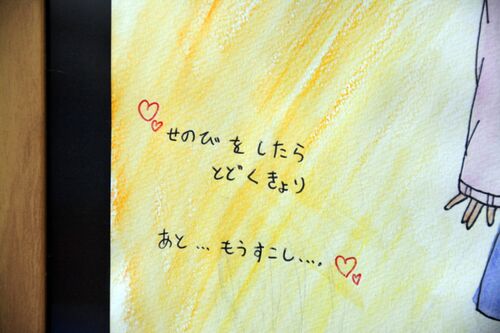 せのびをしたら
とどくきょり
あと…もうすこし….。